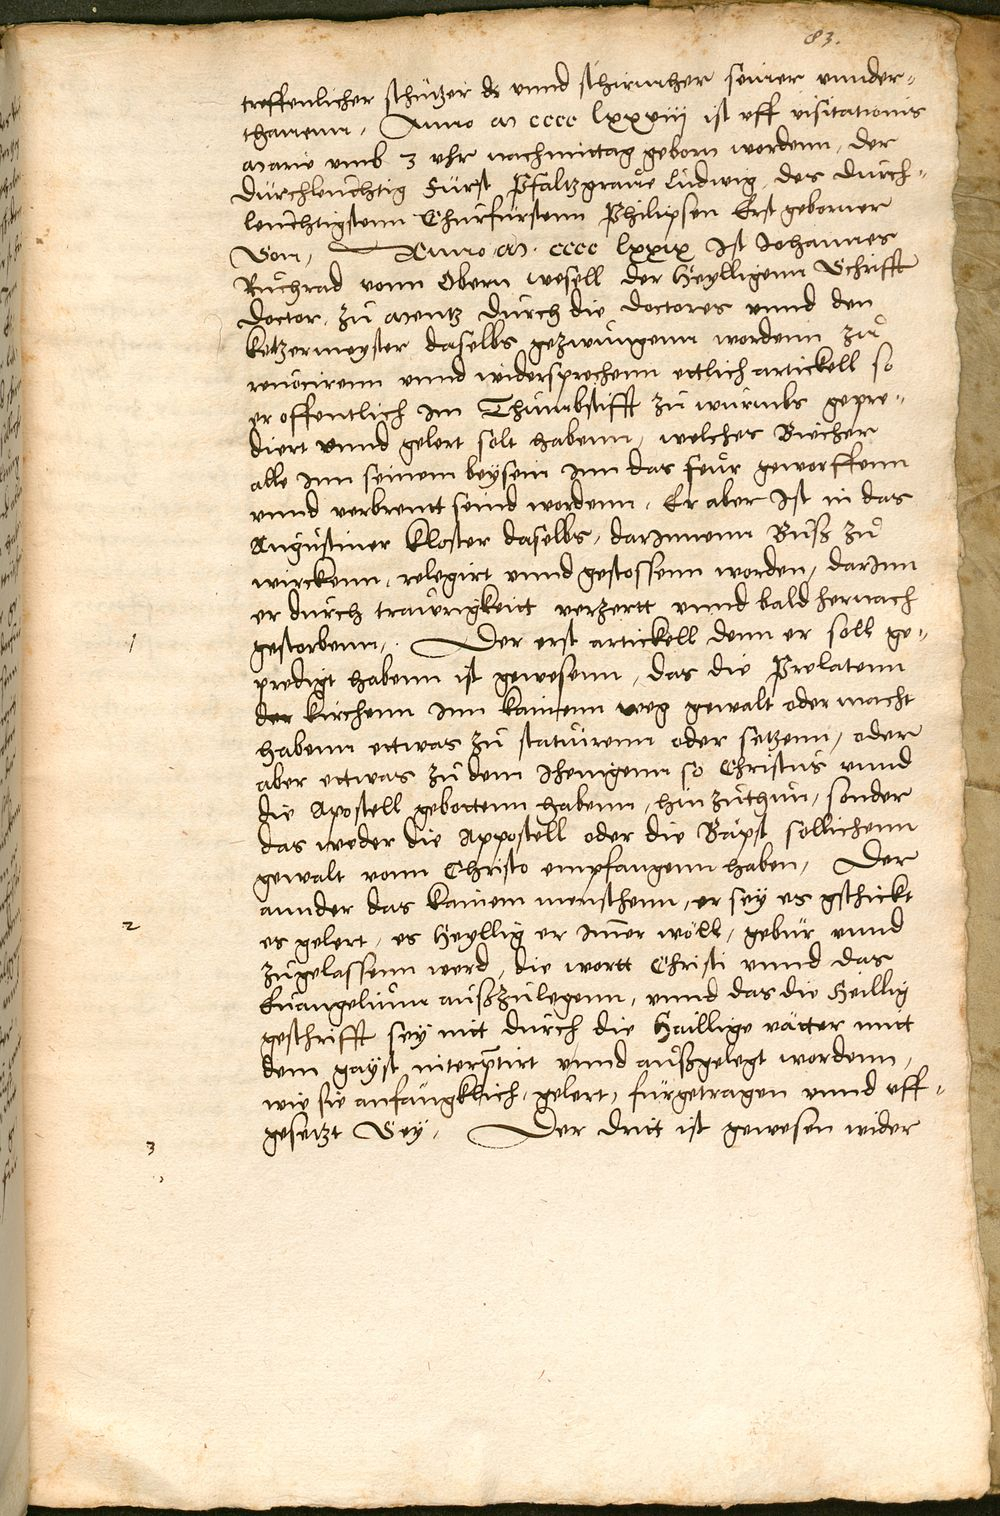 83.
treffenlicher schützer dr unnd schirmher seiner unnder-
thanenn, Anno M cccc lxxviij ist uff visitationis
Marie umb 3 uhr nachmittag geborn wordenn, der
durchleuchtig Fürst Pfaltzgraue Ludwig, des durch-
leuchtigstenn Churfürstenn Philipsen Erst geborner
Son, Anno M. cccc lxxix Ist Johannes
Ruchrad vonn Obern wesell der Heylligenn Schrifft
doctor, zu Mentz durch die doctores unnd den
ketzermeyster daselbs gezwungenn wordenn zu
reuocirenn unnd widersprechenn ettlich artickell so
er offentlich im Thumbstifft zu wurmbs gepre-
diert unnd gelert solt habenn, welches Bücher
alle inn seinem beysein inn das feur geworffenn
unnd verbrentt seind wordenn, Er aber Ist in das
Augustiner Kloster daselbs, darinnenn Buß zu
wirckenn, relegirt unnd gestossenn worden, darinn
er durch traurigkeit verzertt unnd bald hernach
1 gestorbenn,. Der erst artickell denn er soll ge-
predigt habenn ist gewesenn, das die Prelatenn
der kirchenn inn kainenn weg gewalt oder macht
habenn ettwas zu statuirenn oder setzenn, oder
aber ettwas zu dem Jhenigenn so Christus unnd
die Apostell gebottenn habenn, hinzuthun, sonder
das weder die Appostell oder die Bäpst sollichenn
gewalt vonn Christo empfangenn haben, Der
2 annder das kainem menschenn, er sey es gschickt
es gelert, es Heyllig er imer wöll, gebür unnd
zugelassenn werd, die wortt Christi unnd das
Euangelium außzulegenn, unnd das die Heillig
geschrifft sey nitt durch die Haillige vätter mitt
dem gayst interptirt unnd außgelegt wordenn,
wie sie anfängklich, gelert, fürgetragen unnd uff-
3 gesetzt Sey, Der dritt ist gewesen wider